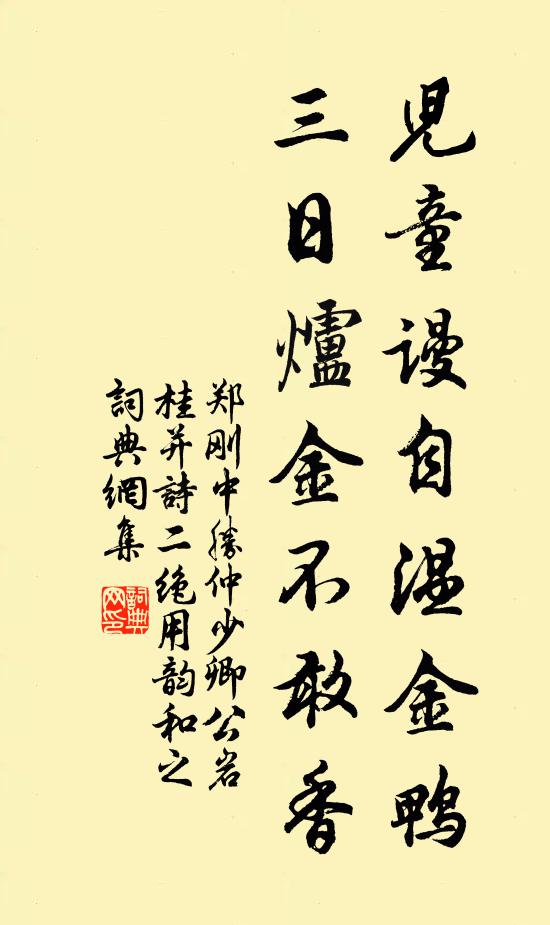 兒童謾自温金鴨
三日爐金不敢香
郑刚中勝仲少卿公岩
桂并詩二绝用韵和之
詞典網集
詞典
网印